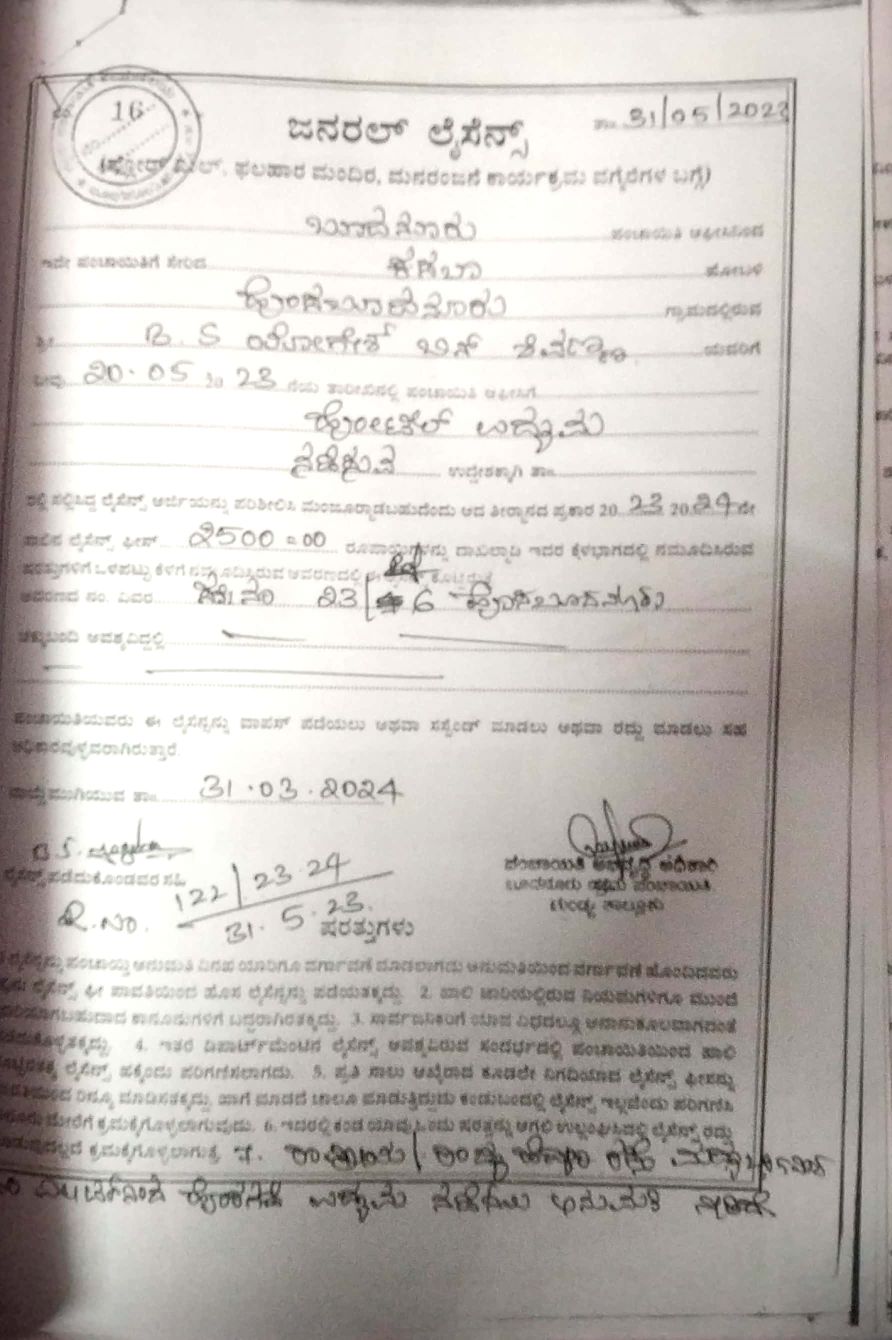 16
ಜನರಲ್ ಲೈಸೆನ್ಸ್
ತಾ. 31/05/2023
ಫಲಹಾರ ಮಂದಿರ, ಮನರಂಜನೆ ಕಾರ್ಯಕ್ರಮ ವಗೈರೆಗಳ ಬಗ್ಗೆ)
ಬೂದನೂರು ಪಂಚಾಯಿತಿ ಆಫೀಸಿನಿಂದ
ಇದೇ ಪಂಚಾಯಿತಿಗೆ ಸೇರಿದ ಕಸಬಾ ಹೋಬಳಿ
ಹೊಸಬೂದನೂರು ಗ್ರಾಮದಲ್ಲಿರುವ
ಶ್ರೀ B. S ಯೋಗೇಶ್ ಬಿನ್ ಯವರಿಗೆ
ನೀವು 20.05 20 23 ನೆಯ ತಾರೀಖಿನಲ್ಲಿ ಪಂಚಾಯಿತಿ ಆಫೀಸಿಗೆ
ಹೋಟೆಲ್ ಉದ್ಯಮ
ನಡೆಸುವ ಉದ್ದೇಶಕ್ಕಾಗಿ ತಾ.
ರಲ್ಲಿ ಸಲ್ಲಿಸಿದ್ದ ಲೈಸೆನ್ಸ್ ಅರ್ಜಿಯನ್ನು ಪರಿಶೀಲಿಸಿ ಮಂಜೂರ್ಮಾಡಬಹುದೆಂದು ಆದ ತೀರ್ಮಾನದ ಪ್ರಕಾರ 20 23 20 24 ನೇ
ಸಾಲಿನ ಲೈಸೆನ್ಸ್ ಫೀಸ್ 2500=00 ರೂಪಾಯಿಗಳನ್ನು ದಾಖಲ್ಮಾಡಿ ಇದರ ಕೆಳಭಾಗದಲ್ಲಿ ನಮೂದಿಸಿರುವ
ಷರತ್ತುಗಳಿಗೆ ಒಳಪಟ್ಟು ಕೆಳಗೆ ನಮೂದಿಸಿರುವ ಆವರಣದಲ್ಲಿ ಈ ಕೊಟ್ಟಿರುತ್ತೆ
ಆವರಣದ ನಂ. ವಿವರ 23/ 6 ಹೊಸಬೂದನೂರು
ಚಕ್ಕುಬಂದಿ ಅವಶ್ಯವಿದ್ದಲ್ಲಿ
ಪಂಚಾಯಿತಿಯವರು ಈ ಲೈಸೆನ್ಸನ್ನು ವಾಪಸ್ ಪಡೆಯಲು ಅಥವಾ ಸಸ್ಪೆಂಡ್ ಮಾಡಲು ಅಥವಾ ರದ್ದು ಮಾಡಲು ಸಹ
ಅಧಿಕಾರವುಳ್ಳವರಾಗಿರುತ್ತಾರೆ.
ವಾಯ್ದೆ ಮುಗಿಯುವ ತಾ. 31.03.2024
B.S.
ಲೈಸೆನ್ಸ್ ಪಡೆದುಕೊಂಡವರ ಸಹಿ
ಪಂಚಾಯತಿ ಅಭಿವೃದ್ಧಿ ಅಧಿಕಾರಿ
ಬೂದನೂರು ಗ್ರಾಮ ಪಂಚಾಯಿತಿ
ಮಂಡ್ಯ ತಾಲ್ಲೂಕು
R.No. 122/23.24
31.5.23.
ಷರತ್ತುಗಳು
ಲೈಸೆನ್ಸನ್ನು ಪಂಚಾಯ್ತಿ ಅನುಮತಿ ವಿನಹ ಯಾರಿಗೂ ವರ್ಗಾವಣೆ ಮಾಡಲಾಗದು ಅನುಮತಿಯಿಂದ ವರ್ಗಾವಣೆ ಹೊಂದಿದವರು
ಲೈಸೆನ್ಸ್ ಫೀ ಪಾವತಿಯಿಂದ ಹೊಸ ಲೈಸೆನ್ಸನ್ನು ಪಡೆಯತಕ್ಕದ್ದು. 2. ಹಾಲಿ ಜಾರಿಯಲ್ಲಿರುವ ನಿಯಮಗಳಿಗೂ ಮುಂದೆ
ಕಾನೂನುಗಳಿಗೆ ಬದ್ಧರಾಗಿರತಕ್ಕದ್ದು. 3. ಸಾರ್ವಜನಿಕರಿಗೆ ಯಾವ ವಿಧದಲ್ಲೂ ಅನಾನುಕೂಲವಾಗದಂತೆ
4. ಇತರ ಡಿಪಾರ್ಟ್‌ಮೆಂಟಿನ ಲೈಸೆನ್ಸ್ ಅವಶ್ಯವಿರುವ ಸಂದರ್ಭದಲ್ಲಿ ಪಂಚಾಯಿತಿಯಿಂದ ಹಾಲಿ
ಲೈಸೆನ್ಸ್ ಹಕ್ಕೆಂದು ಪರಿಗಣಿಸಲಾಗದು. 5. ಪ್ರತಿ ಸಾಲು ಆಖೈರಾದ ಕೂಡಲೇ ನಿಗದಿಯಾದ ಲೈಸೆನ್ಸ್ ಫೀಸನ್ನು
ಮಾಡಿಸತಕ್ಕದ್ದು. ಹಾಗೆ ಮಾಡದೆ ಚಾಲೂ ಮಾಡುತ್ತಿದ್ದುದು ಕಂಡುಬಂದಲ್ಲಿ ಲೈಸೆನ್ಸ್ ಇಲ್ಲವೆಂದು ಪರಿಗಣಿಸಿ
ಮೇರೆಗೆ ಕ್ರಮಕೈಗೊಳ್ಳಲಾಗುವುದು. 6. ಇದರಲ್ಲಿ ಕಂಡ ಯಾವುದೊಂದು ಷರತ್ತನ್ನು ಆಗಲಿ ಉಲ್ಲಂಘಿಸಿದಲ್ಲಿ ಲೈಸೆನ್ಸ್ ರದ್ದು
ಕ್ರಮಕೈಗೊಳ್ಳಲಾಗುತ್ತೆ 7.
ಉದ್ಯಮ ನಡೆಸಲು ಅನುಮತಿ ನೀಡಿದೆ